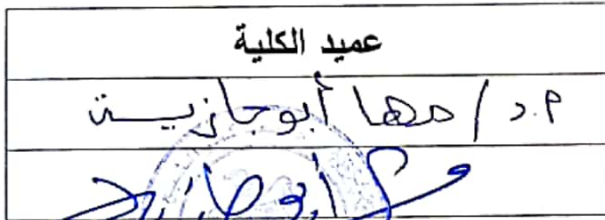 عميد الكلية
م.د/ مها أبوجازية